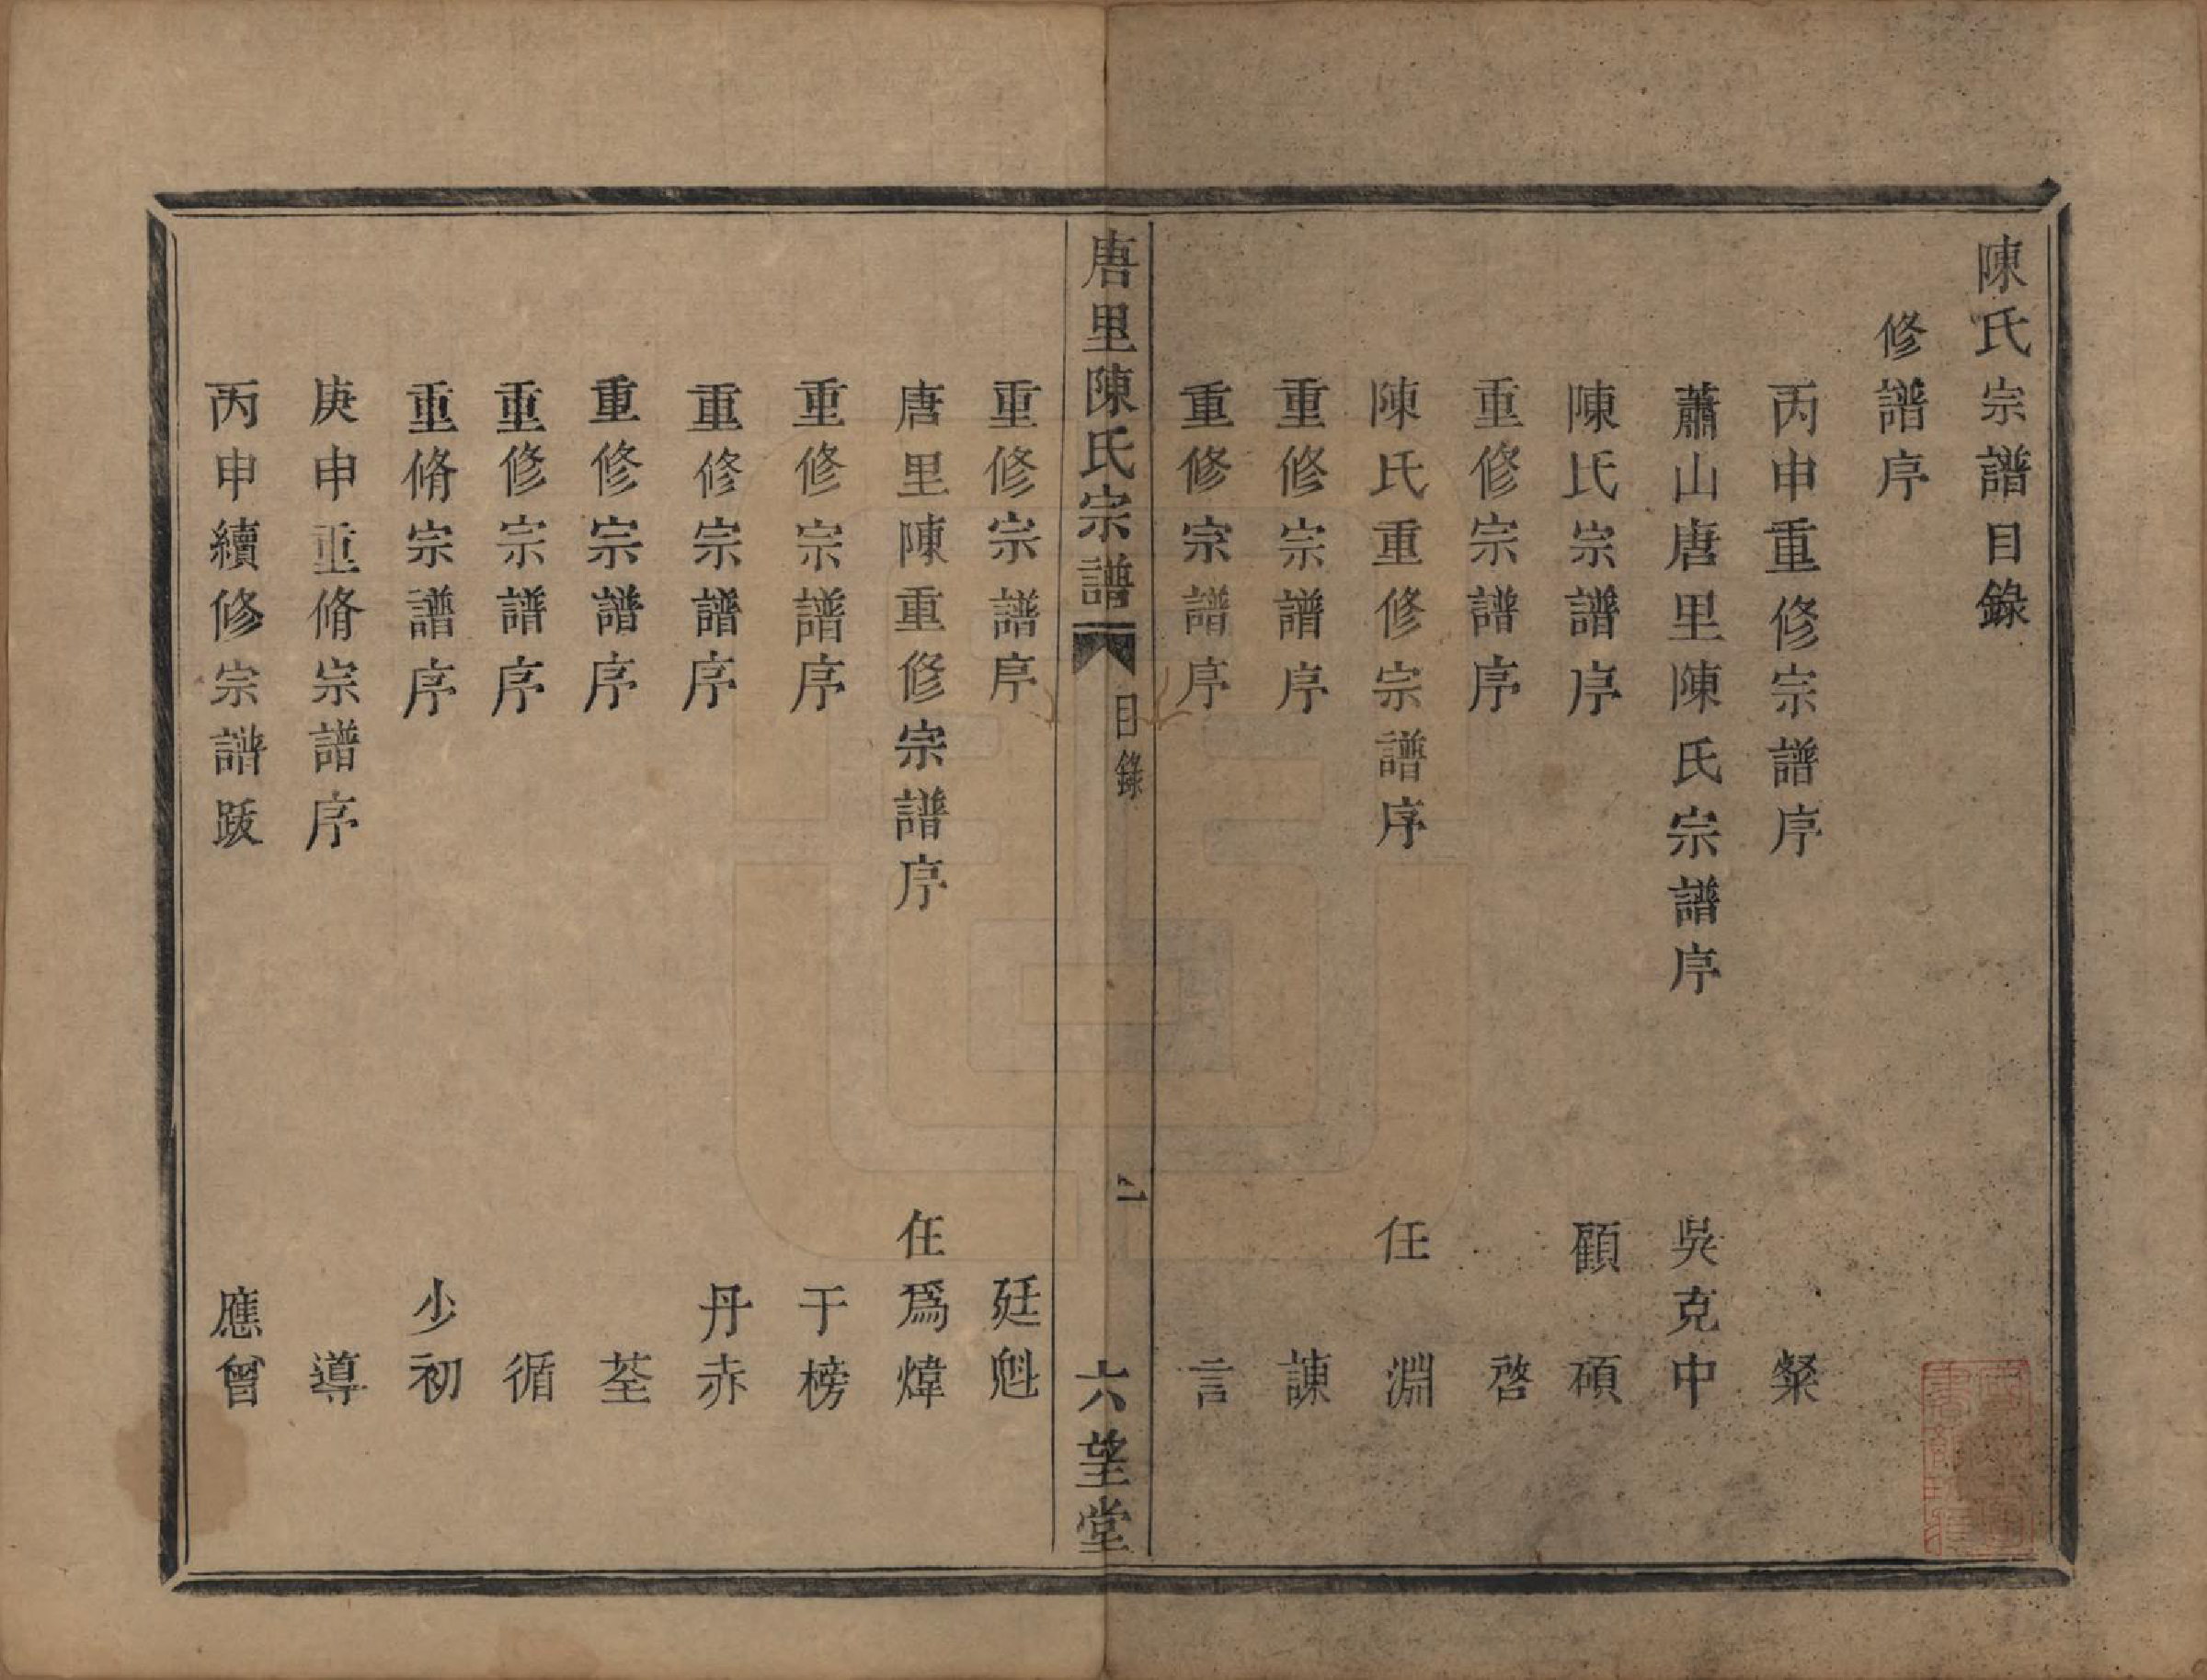 陳氏宗譜目錄
修譜序
丙申重修宗譜序 粲
蕭山唐里陳氏宗譜序 吳克中
陳氏宗譜序 顧碩
重修宗譜序 啓
陳氏重修宗譜序 任淵
重修宗譜序 諫
重修宗譜序 言
唐里陳氏宗譜 目錄 一 六望堂
重修宗譜序 廷魁
唐里陳重修宗譜序 任爲煒
重修宗譜序 于榜
重修宗譜序 丹赤
重修宗譜序 荃
重修宗譜序 循
重脩宗譜序 少初
庚申重脩宗譜序 導
丙申續修宗譜跋 應曾